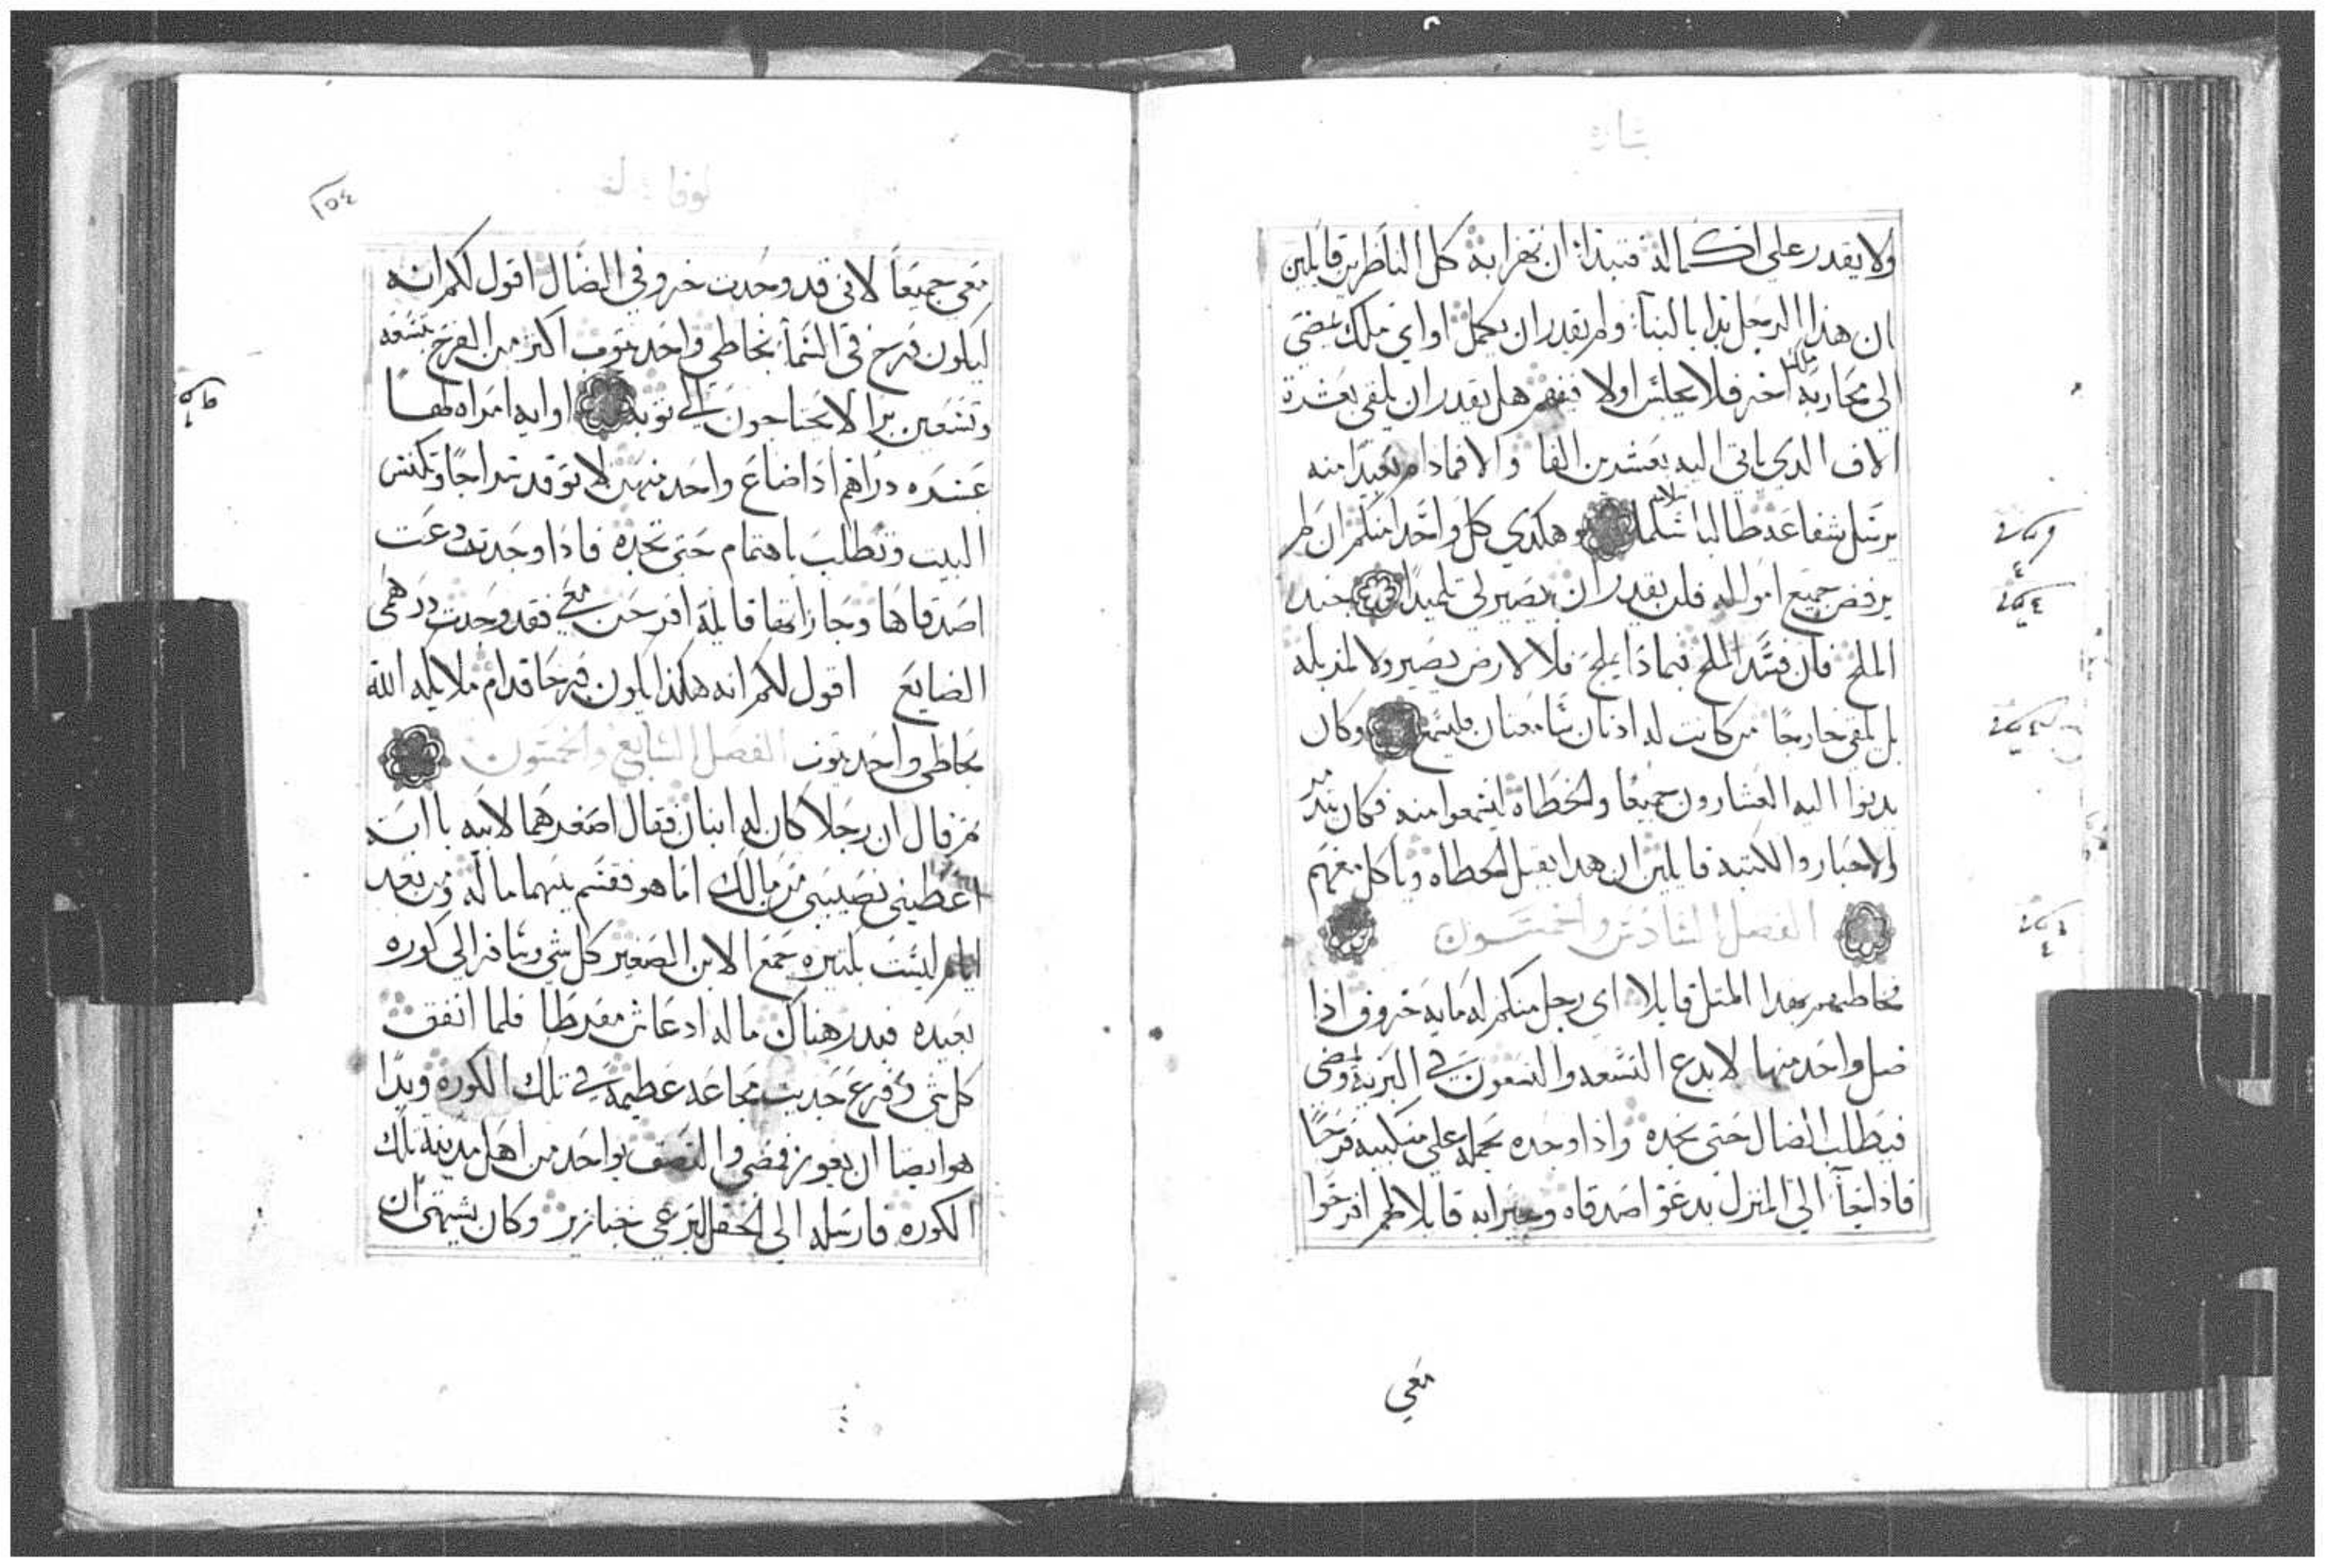 بشاره
ولا يقدر على اكماله فتبدا ان تهزا به كل الناظرين قايلين
ان هذا الرجل بدا بالبنا ولم يقدر ان يكمل او اي ملك يمضي
الي محاربة ملك اخر فلا يجلس اولا فيفهم هل يقدر ان يلقي بعشرة
الاف الذي ياتي اليه بعشرين الفا والا فمادام بعيدا منه
يرسل شفاعه طالبا سلما وهكدي كل واحد منكم ان لم
يرفض جميع امواله فلن يقدر ان يصير لي تلميدا جيد
الملح فان فسد الملح فبمادا يملح فلا لارض يصير ولا لمزبله
بل يلقي خارجا من كانت له ادنان سامعتان فليسمع وكان
يدنوا اليه العشارون جميعا والخطاه ليسمعوا منه فكان يتدمر
الاحبار والكتبه قايلين ان هدا يقبل الخطاه وياكل معهم
الفصل السادس والخمسون
فخاطبهم بهدا المتل قايلا اي رجل منكم له مايه خروف ادا
ضل واحد منها لا يدع التسعه والتسعون في البريه ويمضي
فيطلب الضال حتي يجده وادا وجده يحمله علي منكبيه فرحا
فاذا جا الي المنزل يدعو اصدقاه وجيرانه قايلا لهم افرحوا
معي
لوقا
١٥٤
معي جميعا لاني قد وجدت خروفي الضال اقول لكم انه
ليكون فرح في السما بخاطي واحد يتوب اكثر من الفرح بتسعه
وتسعين برا لا يحتاجون الي توبه او ايه امراه لها
عشره دراهم ادا ضاع واحد منهن لا توقد سراجا وتكنس
البيت وتطلب باهتمام حتي تجده فادا وجدته دعت
اصدقاها وجاراتها قايلة افرحن معي فقد وجدت درهمي
الضايع اقول لكم انه هكذا يكون فرحا قدام ملايكه الله
بخاطي واحد يتوب الفصل السابع والخمسون
ثم قال ان رجلا كان له ابنان فقال اصغرهما لابيه يا ابت
اعطيني نصيبي من مالك اما هو فقسم بينهما ماله ومن بعد
ايام ليست بكتيره جمع الابن الصغير كل شي وسافر الي كوره
بعيده فبدر هناك ماله اد عاش مفرطا فلما انفق
كل شي وفرغ حديت مجاعه عظيمة في تلك الكوره وبدا
هو ايضا ان يعوز فمضي والتصق بواحد من اهل مدينة تلك
الكوره فارسله الي الحقل ليرعي خنازير وكان يشتهي ان